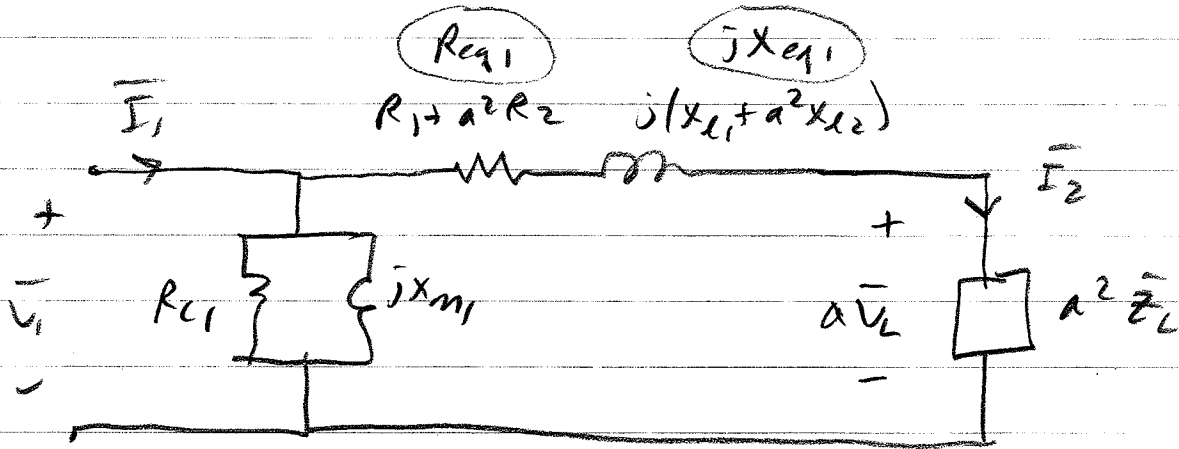 Req1 jXeq1
Ī1 R1 + a²R2 j(xl1 + a²xl2)
Ī2
+ +
V̄1 Rc1 jxm1 aV̄L a² Z̄L
- -